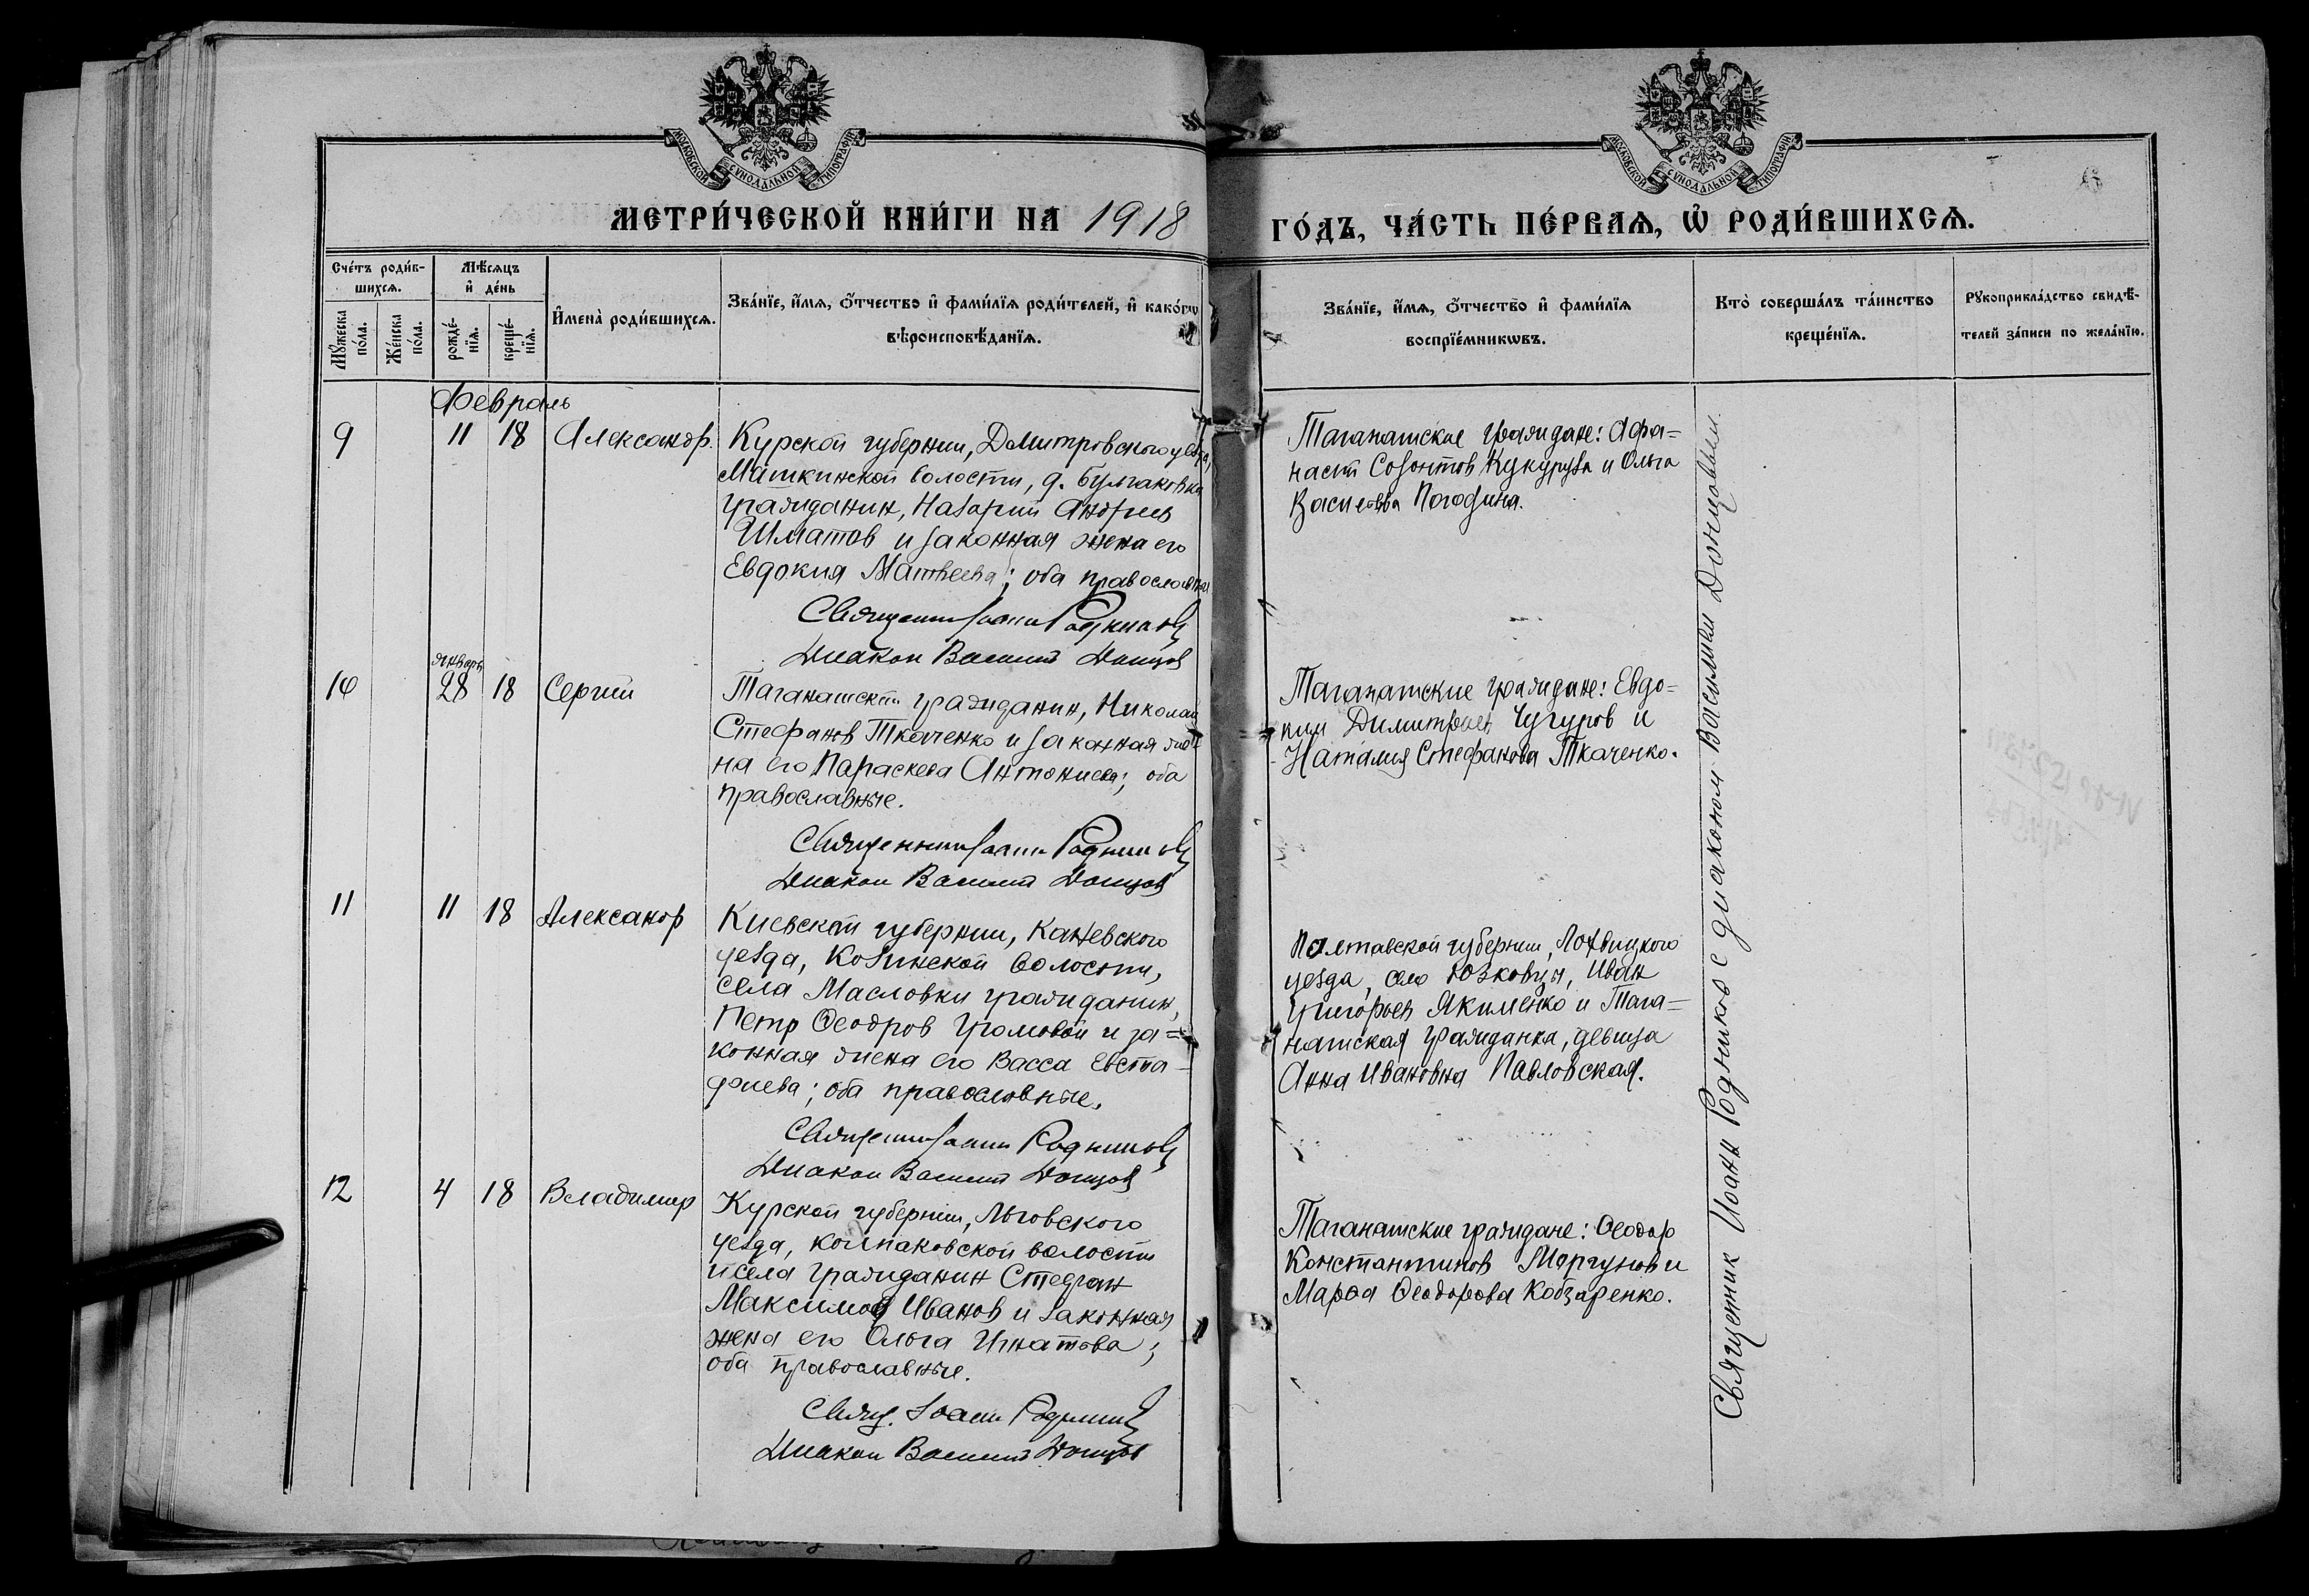 МОСКОВСКОЙ СѴНОДАЛЬНОЙ ТИПОГРАФІИ
МОСКОВСКОЙ СѴНОДАЛЬНОЙ ТИПОГРАФІИ
МЕТРИ́ЧЕСКОЙ КНИ́ГИ НА 1918
ГО́ДЪ, ЧА́СТЬ ПЕ́РВАѦ, Ѡ҆ РОДИ́ВШИХСѦ.
Сче́тъ роди́в-
шихсѧ.
Мꙋ́жеска
по́ла.
Же́нска
по́ла.
Мѣ́сѧцъ
и҆ де́нь
рожде́-
нїѧ.
креще́-
нїѧ.
И҆мена̀ роди́вшихсѧ.
Зва́нїе, и҆́мѧ, ѻ҆́тчество и҆ фами́лїѧ роди́телей, и҆ како́гѡ
вѣроисповѣ́данїѧ.
Зва́нїе, и҆́мѧ, ѻ҆́тчество и҆ фами́лїѧ
воспрїе́мникѡвъ.
Кто̀ соверша́лъ та́инство
креще́нїѧ.
Рꙋкоприкла́дство свидѣ́-
телей за́писи по жела́нїю.
Февраль
9 11 18 Александр.
Курской губернии, Дмитровского уезда,
Маткинской волости, д. Булгаковки
гражданин, Назарий Андреев
Шматов и законная жена его
Евдокия Матвеева; оба православные
Священник Иоанн Родников
Диакон Василий Донцов
Таганашские граждане: Афа=
насий Созонтов Кукуруза и Ольга
Васильева Погодина.
январь
10 28 18 Сергий
Таганашский гражданин, Николай
Стефанов Ткаченко и законная же=
на его Параскева Антониева; оба
православные.
Священник Иоанн Родников
Диакон Василий Донцов
Таганашские граждане: Евдо=
ким Димитриев Чугуров и
Наталия Стефанова Ткаченко.
11 11 18 Александр
Киевской губернии, Каневского
уезда, Козинской волости,
села Масловки гражданин,
Петр Феодров Громовой и за=
конная жена его Васса Евста=
фиева; оба православные.
Священник Иоанн Родников
Диакон Василий Донцов
Полтавской губернии, Лохвицкого
уезда, село Юзковцы, Иван
Григорьев Якименко и Тага=
нашская гражданка, девица
Анна Ивановна Павловская.
12 4 18 Владимир
Курской губернии, Льговского
уезда, Колпаковской волости
и села гражданин Стефан
Максимов Иванов и законная
жена его Ольга Игнатова;
оба православные.
Свящ. Иоанн Родников
Диакон Василий Донцов
Таганашские граждане: Феодор
Константинов Моргунов и
Марфа Феодорова Кобзаренко.
Священник Иоанн Родников с диаконом Василием Донцовым.